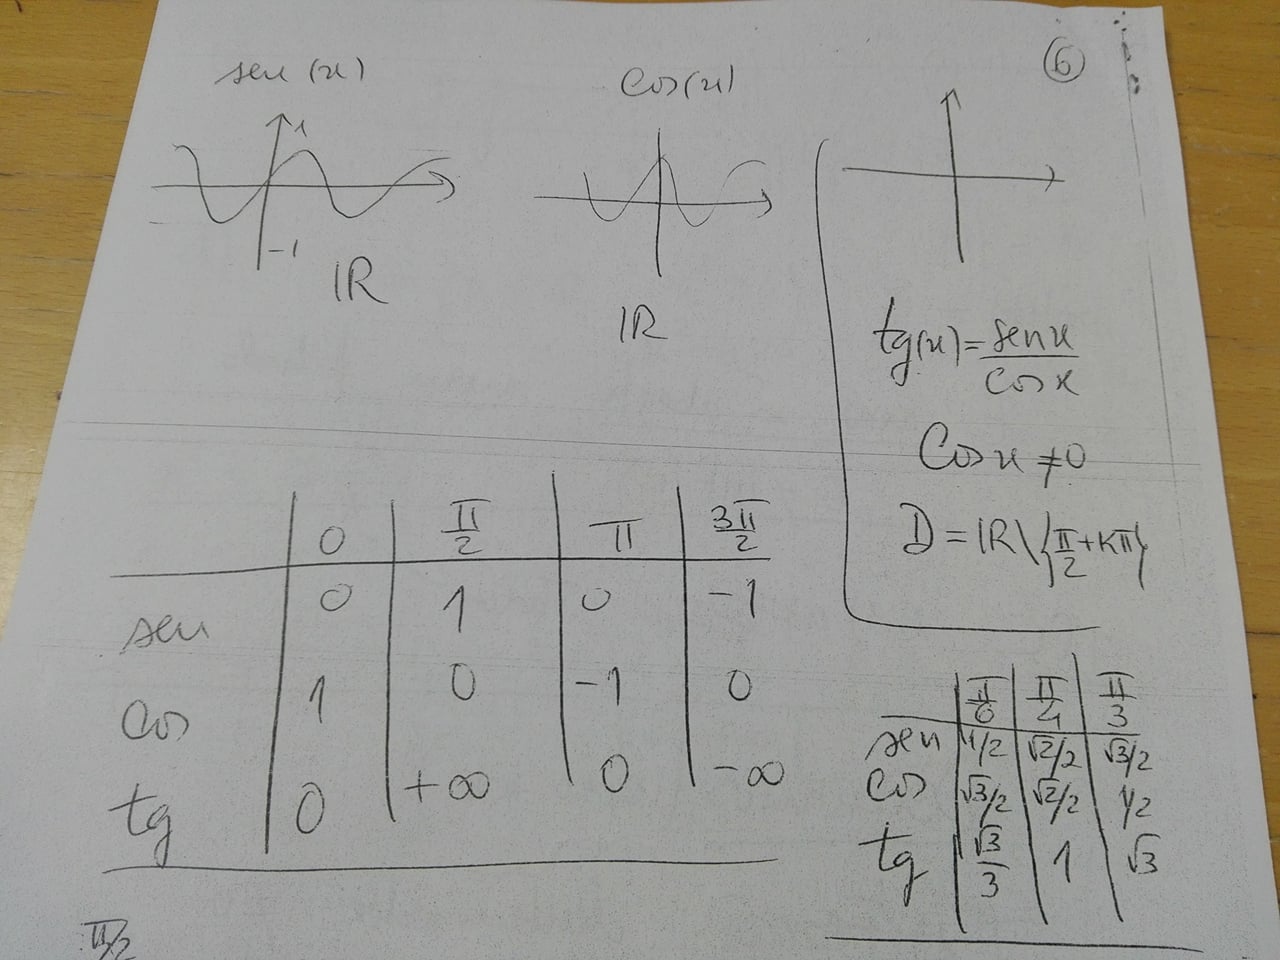 6
sen (x)
1
-1
IR
Cos(x)
IR
tg(x) = sen x / cos x
Cos x ≠ 0
D = IR \ {π/2 + kπ}
0 π/2 π 3π/2
sen 0 1 0 -1
Cos 1 0 -1 0
tg 0 +∞ 0 -∞
π/6 π/4 π/3
sen 1/2 √2/2 √3/2
Cos √3/2 √2/2 1/2
tg √3/3 1 √3
π/2